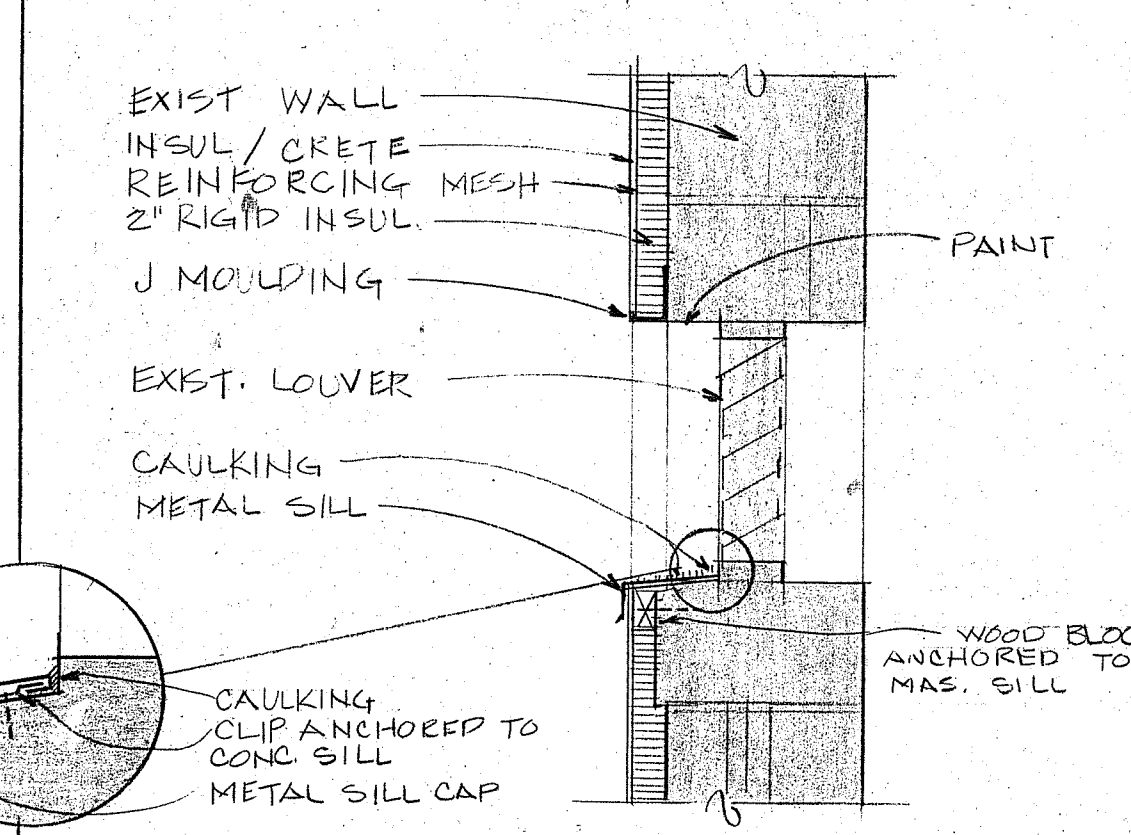 EXIST WALL
INSUL / CRETE
REINFORCING MESH
2" RIGID INSUL.
J MOULDING
PAINT
EXIST. LOUVER
CAULKING
METAL SILL
WOOD BLOC
ANCHORED TO
MAS. SILL
CAULKING
CLIP ANCHORED TO
CONC. SILL
METAL SILL CAP